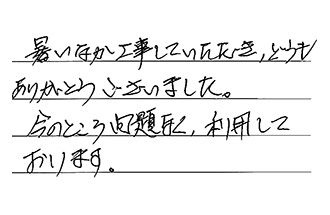 暑いなか工事していただき,どうも
ありがとうございました。
今のところ問題なく,利用して
おります。